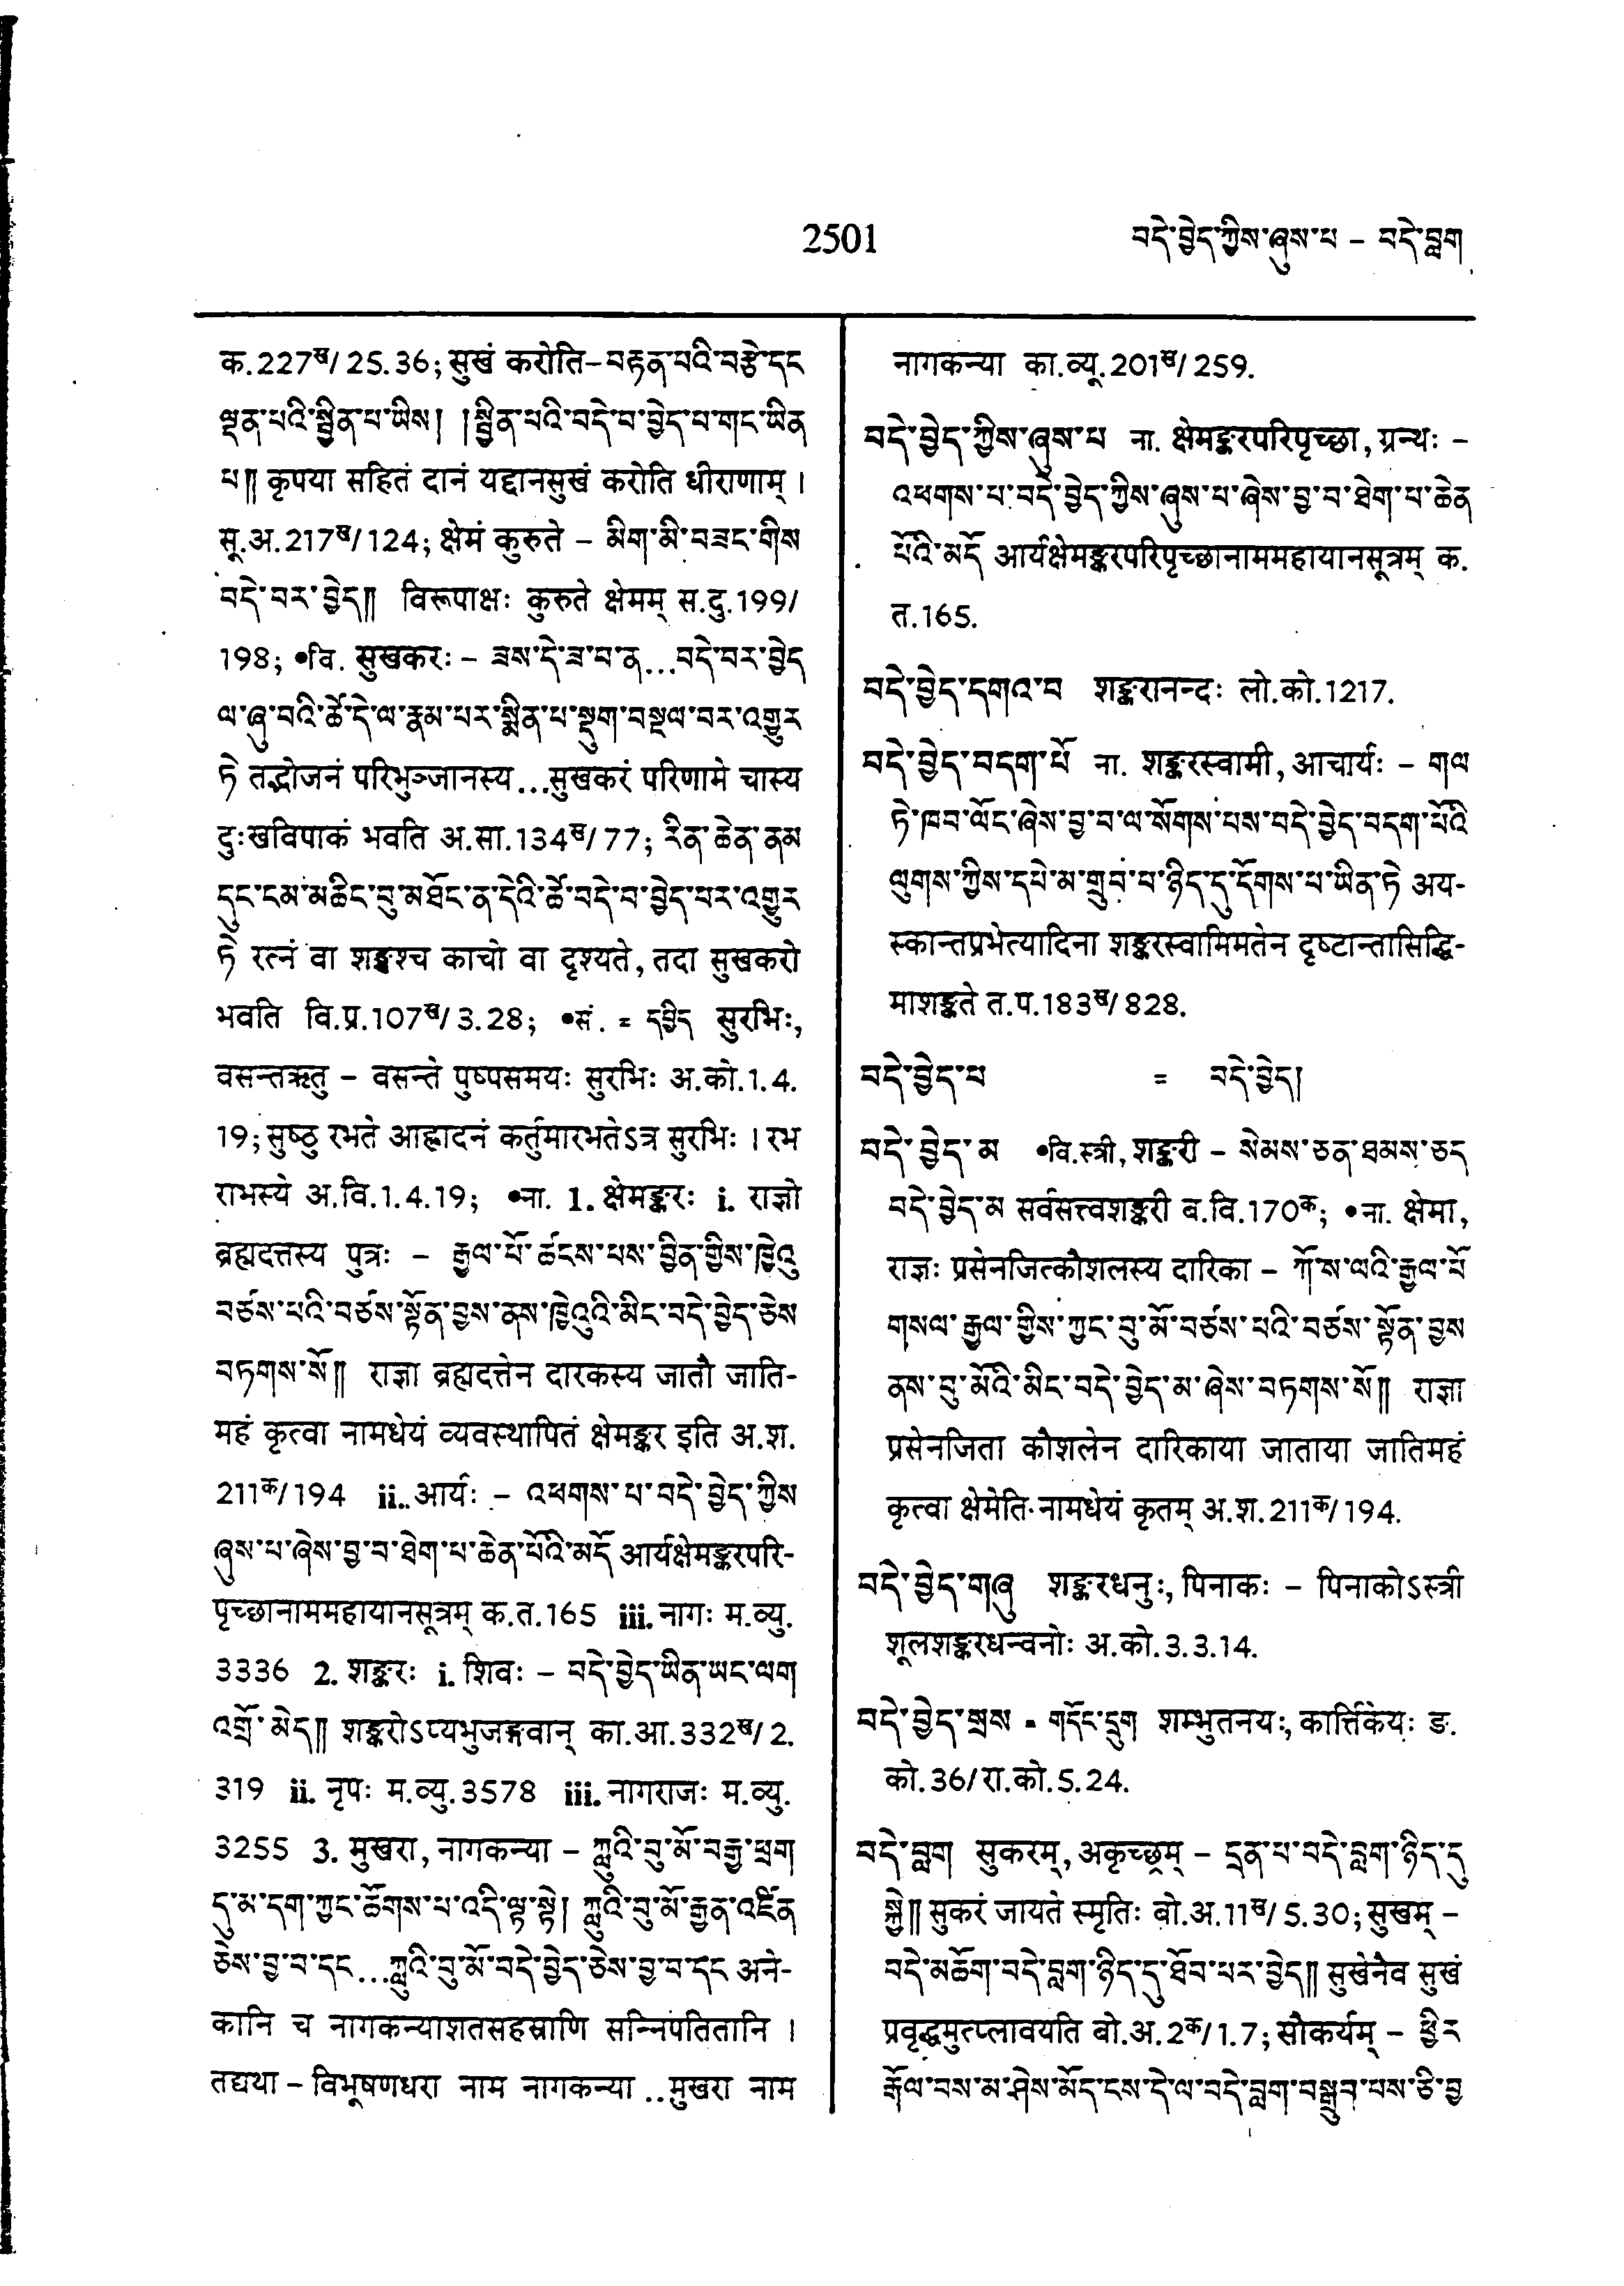 2501
བདེ་བྱེད་ཀྱིས་ཞུས་པ – བདེ་བླག
क.227ख/25.36; सुखं करोति–བརྟན་པའི་བརྩེ་དང
ལྡན་པའི་སྦྱིན་པ་ཡིས། །སྦྱིན་པའི་བདེ་བ་བྱེད་པ་གང་ཡིན
པ༎ कृपया सहितं दानं यद्दानसुखं करोति धीराणाम् ।
सू.अ.217ख/124; क्षेमं कुरुते – མིག་མི་བཟང་གིས
བདེ་བར་བྱེད༎ विरूपाक्षः कुरुते क्षेमम् स.दु.199/
198; •वि. सुखकरः – ཟས་དེ་ཟ་བ་ན...བདེ་བར་བྱེད
ལ་ཞུ་བའི་ཚེ་དེ་ལ་རྣམ་པར་སྨིན་པ་སྡུག་བསྔལ་བར་འགྱུར
ཏེ तद्भोजनं परिभुञ्जानस्य...सुखकरं परिणामे चास्य
दुःखविपाकं भवति अ.सा.134ख/77; རིན་ཆེན་ནམ
དུང་ངམ་མཆིང་བུ་མཐོང་ན་དེའི་ཚེ་བདེ་བ་བྱེད་པར་འགྱུར
ཏེ रत्नं वा शङ्खश्च काचो वा दृश्यते, तदा सुखकरो
भवति वि.प्र.107ख/3.28; •सं. = དཔྱིད सुरभिः,
वसन्तऋतु – वसन्ते पुष्पसमयः सुरभिः अ.को.1.4.
19; सुष्ठु रभते आह्लादनं कर्तुमारभतेऽत्र सुरभिः । रभ
राभस्ये अ.वि.1.4.19; •ना. 1. क्षेमङ्करः i. राज्ञो
ब्रह्मदत्तस्य पुत्रः – རྒྱལ་པོ་ཚངས་པས་བྱིན་གྱིས་ཁྱེའུ
བཙས་པའི་བཙས་སྟོན་བྱས་ནས་ཁྱེའུའི་མིང་བདེ་བྱེད་ཅེས
བཏགས་སོ༎ राज्ञा ब्रह्मदत्तेन दारकस्य जातौ जाति-
महं कृत्वा नामधेयं व्यवस्थापितं क्षेमङ्कर इति अ.श.
211क/194 ii. आर्यः – འཕགས་པ་བདེ་བྱེད་ཀྱིས
ཞུས་པ་ཞེས་བྱ་བ་ཐེག་པ་ཆེན་པོའི་མདོ आर्यक्षेमङ्करपरि-
पृच्छानाममहायानसूत्रम् क.त.165 iii. नागः म.व्यु.
3336 2. शङ्करः i. शिवः – བདེ་བྱེད་ཡིན་ཡང་ལག
འགྲོ་མེད༎ शङ्करोऽप्यभुजङ्गवान् का.आ.332ख/2.
319 ii. नृपः म.व्यु.3578 iii. नागराजः म.व्यु.
3255 3. मुखरा, नागकन्या – ཀླུའི་བུ་མོ་བརྒྱ་ཕྲག
དུ་མ་དག་ཀྱང་ཚོགས་པ་འདི་ལྟ་སྟེ། ཀླུའི་བུ་མོ་རྒྱན་འཛིན
ཅེས་བྱ་བ་དང...ཀླུའི་བུ་མོ་བདེ་བྱེད་ཅེས་བྱ་བ་དང अने-
कानि च नागकन्याशतसहस्राणि सन्निपतितानि ।
तद्यथा – विभूषणधरा नाम नागकन्या ..मुखरा नाम
नागकन्या का.व्यू.201ख/259.
བདེ་བྱེད་ཀྱིས་ཞུས་པ ना. क्षेमङ्करपरिपृच्छा, ग्रन्थः –
འཕགས་པ་བདེ་བྱེད་ཀྱིས་ཞུས་པ་ཞེས་བྱ་བ་ཐེག་པ་ཆེན
པོའི་མདོ आर्यक्षेमङ्करपरिपृच्छानाममहायानसूत्रम् क.
त.165.
བདེ་བྱེད་དགའ་བ शङ्करानन्दः लो.को.1217.
བདེ་བྱེད་བདག་པོ ना. शङ्करस्वामी, आचार्यः – གལ
ཏེ་ཁབ་ལོང་ཞེས་བྱ་བ་ལ་སོགས་པས་བདེ་བྱེད་བདག་པོའི
ལུགས་ཀྱིས་དཔེ་མ་གྲུབ་པ་ཉིད་དུ་དོགས་པ་ཡིན་ཏེ अय-
स्कान्तप्रभेत्यादिना शङ्करस्वामिमतेन दृष्टान्तासिद्धि-
माशङ्कते त.प.183ख/828.
བདེ་བྱེད་པ = བདེ་བྱེད།
བདེ་བྱེད་མ •वि.स्त्री, शङ्करी – སེམས་ཅན་ཐམས་ཅད
བདེ་བྱེད་མ सर्वसत्त्वशङ्करी ब.वि.170क; •ना. क्षेमा,
राज्ञः प्रसेनजित्कौशलस्य दारिका – ཀོ་ས་ལའི་རྒྱལ་པོ
གསལ་རྒྱལ་གྱིས་ཀྱང་བུ་མོ་བཙས་པའི་བཙས་སྟོན་བྱས
ནས་བུ་མོའི་མིང་བདེ་བྱེད་མ་ཞེས་བཏགས་སོ༎ राज्ञा
प्रसेनजिता कौशलेन दारिकाया जाताया जातिमहं
कृत्वा क्षेमेति नामधेयं कृतम् अ.श.211क/194.
བདེ་བྱེད་གཞུ शङ्करधनुः, पिनाकः – पिनाकोऽस्त्री
शूलशङ्करधन्वनोः अ.को.3.3.14.
བདེ་བྱེད་སྲས = གདོང་དྲུག शम्भुतनयः, कार्त्तिकेयः ङ.
को.36/रा.को.5.24.
བདེ་བླག सुकरम्, अकृच्छ्रम् – དྲན་པ་བདེ་བླག་ཉིད་དུ
སྐྱེ༎ सुकरं जायते स्मृतिः बो.अ.11ख/5.30; सुखम् –
བདེ་མཆོག་བདེ་བླག་ཉིད་དུ་ཐོབ་པར་བྱེད༎ सुखेनैव सुखं
प्रवृद्धमुत्प्लावयति बो.अ.2क/1.7; सौकर्यम् – ཕྱིར
རྒོལ་བས་མ་ཤེས་མོད་ངས་དེ་ལ་བདེ་བླག་བསྒྲུབ་པས་ཅི་བྱ